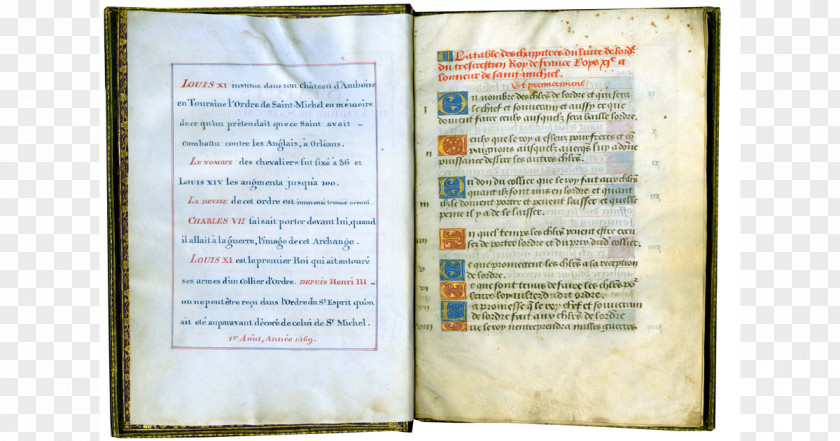 LOUIS XI institua dans son Château d'Amboise
en Touraine l'Ordre de Saint-Michel en mémoire
de ce qu'on prétendait que ce Saint avait -
combattu contre les Anglais, à Orléans.
LE NOMBRE des chevaliers fut fixé à 36 et
LOUIS XIV les augmenta jusqu'a 100.
LA DEVISE de cet ordre est immensi tremor oceani.
CHARLES VII faisait porter devant lui, quand
il allait à la guerre, l'image de cet Archange.
LOUIS XI est le premier Roi qui ait entouré
ses armes d'un collier d'Ordre. DEPUIS Henri III -
on ne peut être reçu dans l'Ordre du St Esprit qu'on
ait été auparavant décoré de celui de St Michel.
1er Août, Année 1469.
La table des chapitres du livre de lordre
du trescrestien Roy de france Loys XIe a
lonneur de saint michiel.
Et premierement
i
Du nombre des chlrs de lordre et qui sera
le chief et souverain et aussy ce que
doivent faire ceulx ausquelz sera baille lordre.
ii
Ceulx que le roy a esleuz pour freres et
compaignons ausquelz avecques luy a donne
puissance deslire les autres chlrs.
Du don du collier que le roy fait aux chlrs
quant ilz sont mis en lordre et quant
ilz le doivent porter et pevent laisser et quelle
peine il y a de le laisser.
En quel temps les chlrs pevent estre
excusez de porter lordre et du pris dud collier.
Ce que promectent les chlrs a la reception
de lordre.
Ce que sont tenus de faire les chlrs
de lordre
La promesse que le roy chef et souverain
de lordre fait aux chlrs de lordre
Que le roy nentreprendra nulles guerres